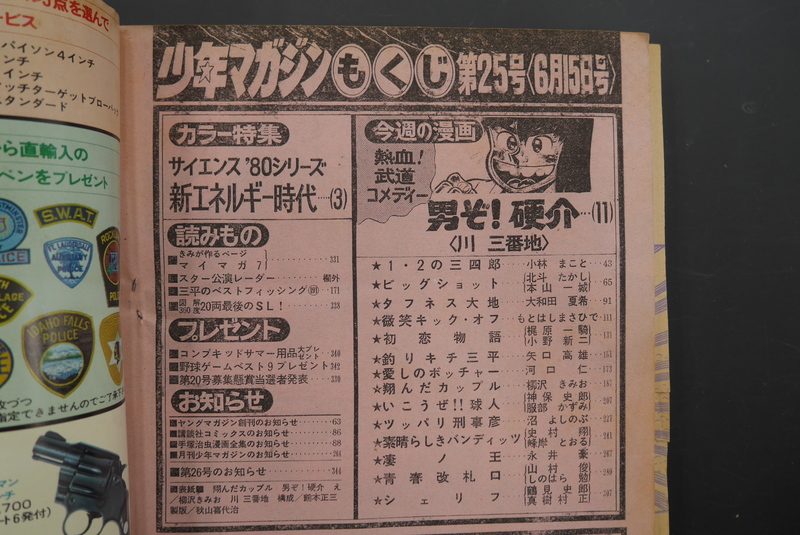 点を選んで
ービス
パイソン4インチ
ンチ
インチ
ッチターゲットブローバック
スタンダード
ら直輸入の
ペンをプレゼント
WESTMINSTER
POLICE
S.W.A.T.
FT. LAUDERDALE
AUXILIARY
POLICE
IDAHO FALLS
POLICE
少年マガジンもくじ 第25号〈6月15日号〉
カラー特集
サイエンス'80シリーズ
新エネルギー時代…(3)
読みもの
■きみが作るページ
マイマガ7
■スター公演レーダー 欄外
■三平のベストフィッシング 171
■図解 350度 20両最後のSL! 238
プレゼント
■コンプキッドサマー用品大プレゼント 340
■野球ゲームベスト9プレゼント 342
■第20号募集懸賞当選者発表
お知らせ
■ヤングマガジン創刊のお知らせ 63
■講談社コミックスのお知らせ 86
■手塚治虫漫画全集のお知らせ 88
■月刊少年マガジンのお知らせ
■第26号のお知らせ 344
■表紙 翔んだカップル 男ぞ!硬介 え
/柳沢きみお 川 三番地 構成/前本正三
製版/秋山喜代治
今週の漫画
熱血!
武道
コメディー
男ぞ!硬介…(11)
〈川 三番地〉
★1・2の三四郎 小林 まこと 43
★ビッグショット 北斗 たかし 本山 一城 65
★タフネス大地 大和田 夏希 91
★微笑キック・オフ もとはしまさひで 111
★初恋物語 梶原 一騎 小野 新二 131
★釣りキチ三平 矢口 高雄 151
★愛しのボッチャー 河口 仁 173
★翔んだカップル 柳沢 きみお 187
★いこうぜ!!球人 神保 史郎 服部 かずみ 207
★ツッパリ刑事彦 沼 よしのぶ 227
★素晴らしきバンディッツ 史村 翔 峰岸 とおる 241
★凄ノ王 永井 豪 267
★青春改札口 山村 俊 しのはら 勉 280
★シェリフ 鶴見 史郎 真樹村 正 297
改づつ
指定できませんのでご了承下
マン
ンチ
700
ート6発付)